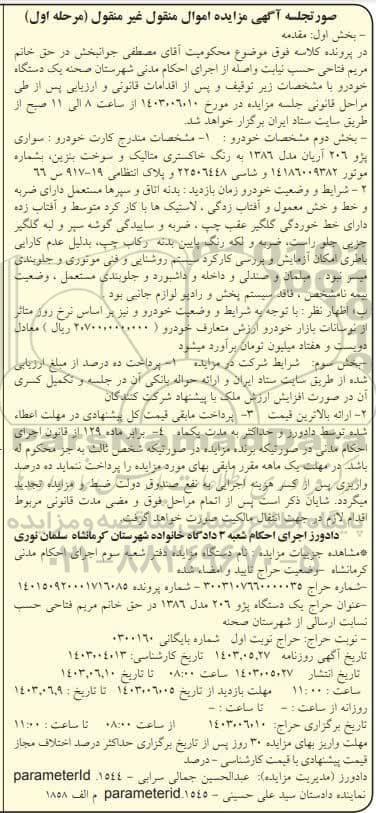 صورتجلسه آگهی مزایده اموال منقول غیر منقول (مرحله اول)
- بخش اول: مقدمه
در پرونده کلاسه فوق موضوع محکومیت آقای مصطفی جوانبخش در حق خانم
مریم فتاحی حسب نیابت واصله از اجرای احکام مدنی شهرستان صحنه یک دستگاه
خودرو با مشخصات زیر توقیف و پس از اقدامات قانونی و ارزیابی پس از طی
مراحل قانونی جلسه مزایده در مورخ ۱۴۰۳۰۰۶۰۱۰ از ساعت ۸ الی ۱۱ صبح از
طریق سایت ستاد ایران برگزار خواهد شد.
- بخش دوم مشخصات خودرو : ۱- مشخصات مندرج کارت خودرو : سواری
پژو ۲۰۶ آریان مدل ۱۳۸۶ به رنگ خاکستری متالیک و سوخت بنزین، بشماره
موتور ۱۴۱۸۶۰۰۹۳۸۲ و شاسی ۲۲۵۰۶۴۴۸ و پلاک انتظامی ۱۹-۹۱۷ س ۶۶
۲ - شرایط و وضعیت خودرو زمان بازدید : بدنه اتاق و سپرها مستعمل دارای ضربه
و خط و خش معمول و آفتاب زدگی ، لاستیک ها با کار کرد متوسط و آفتاب زده
دارای خط خوردگی گلگیر عقب چپ ، ضربه و ساییدگی گوشه سپر و لبه گلگیر
جزیی جلو راست، ضربه و لکه رنگ پایین بدنه رکاب چپ، بدلیل عدم کارایی
باطری امکان آزمایش و بررسی کارکرد سیستم روشنایی و فنی موتوری و جلوبندی
میسر نبود . مبلمان و صندلی و داخله و داشبورد و جلوبندی مستعمل ، وضعیت
بیمه نامشخص ، فاقد سیستم پخش و رادیو لوازم جانبی بود .
ب: اظهار نظر : با توجه به شرایط و وضعیت خودرو و نیز بر اساس نرخ روز متاثر
از نوسانات بازار خودرو ارزش متعارف خودرو ( ۲۰۷۰۰۰۰۰۰۰۰۰۰ ریال ) معادل
دویست و هفتاد میلیون تومان برآورد میشود
-بخش سوم: شرایط شرکت در مزایده ۱- پرداخت ده درصد از مبلغ ارزیابی
شده از طریق سایت ستاد ایران و ارائه حواله بانکی آن در جلسه و تکمیل کسری
آن در صورت افزایش ارزش ملک با پیشنهاد شرکت کنندگان
۲- ارائه بالاترین قیمت ۳- پرداخت مابقی قیمت کل پیشنهادی در مهلت اعطاء
شده توسط دادورز و حداکثر به مدت یکماه ۴- برابر ماده ۱۲۹ از قانون اجرای
احکام مدنی در صورتیکه برنده مزایده در صورتیکه شخص ثالث به جز محکوم له
باشد. در مهلت یک ماهه مقرر مابقی بهای مورد مزایده را پرداخت ننماید ده درصد
واریزی پس از کسر هزینه اجرایی به نفع صندوق دولت ضبط و مزایده تجدید
میگردد. شایان ذکر است پس از اتمام مراحل فوق و مضی مدت قانونی مربوط
اقدام لازم در جهت انتقال مالکیت صورت خواهد گرفت.
دادورز اجرای احکام شعبه ۳ دادگاه خانواده شهرستان کرمانشاه سلمان نوری
*مشاهده جزییات مزایده : نام دستگاه مزایده دفتر شعبه سوم اجرای احکام مدنی
کرمانشاه -وضعیت حراج تأیید و امضاء شده
-شماره حراج ۳۰۰۳۱۰۷۶۶۰۰۰۰۰۳۵ - شماره پرونده ۱۴۰۱۵۰۹۲۰۰۰۱۷۱۶۰۸۵
-عنوان حراج یک دستگاه پژو ۲۰۶ مدل ۱۳۸۶ در حق خانم مریم فتاحی حسب
نسابت ارسالی از شهرستان صحنه
- نوبت حراج: حراج نوبت اول شماره بایگانی ۰۳۰۰۱۶۰
تاریخ آگهی روزنامه ۱۴۰۳.۰۵.۲۷ تاریخ کارشناسی: ۱۴۰۳۰۰۴۰۱۳
تاریخ انتشار ۱۴۰۳۰۰۵۰۲۷ ساعت ۰۸:۰۰ تا تاریخ ۱۴۰۳.۰۶.۱۰
ساعت : ۱۱:۰۰ مهلت بازدید از تاریخ ۱۴۰۳۰۰۶۰۰۵ تا تاریخ : ۱۴۰۳.۰۶.۹
روزانه از ساعت : - تا ساعت : -
تاریخ برگزاری حراج: ۱۴۰۳۰۰۶۰۱۰ از ساعت ۰۸:۰۰ تا ساعت : ۱۱:۰۰
مهلت واریز بهای مزایده ۳۰ روز پس از تاریخ برگزاری حداکثر درصد اختلاف مجاز
قیمت پیشنهادی با قیمت کارشناسی - درصد
دادورز (مدیریت مزایده): عبدالحسین جمالی سرابی - ۱۵۴۴. parameterId
نماینده دادستان سید علی حسینی - ۱۵۴۵. parameterid م الف ۱۸۵۸